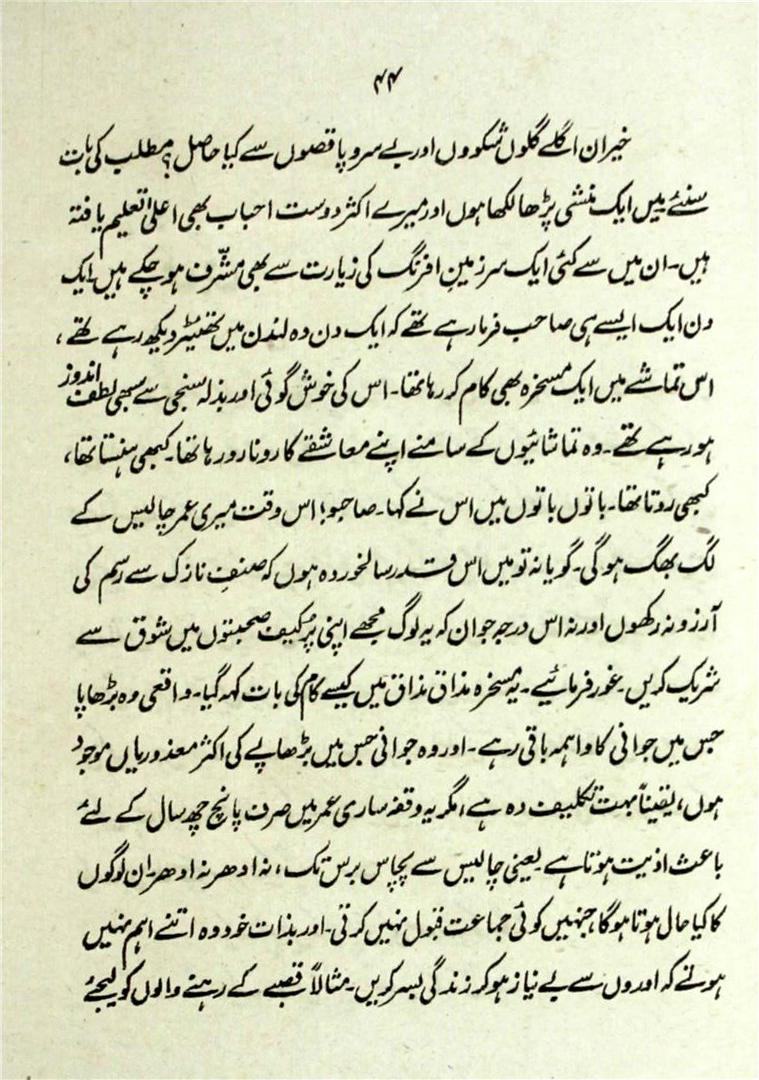 ۴۴
خیر ان اگلے گلوں شکووں اور بے سروپا قصوں سے کیا حاصل؟ مطلب کی بات
سنئے میں ایک منشی پڑھا لکھا ہوں اور میرے اکثر دوست احباب بھی اعلیٰ تعلیم یافتہ
ہیں۔ ان میں سے کئی ایک سرزمینِ افرنگ کی زیارت سے بھی مشرّف ہو چکے ہیں۔ ایک
دن ایک ایسے ہی صاحب فرما رہے تھے کہ ایک دن وہ لندن میں تھئیٹر دیکھ رہے تھے،
اس تماشے میں ایک مسخرہ بھی کام کر رہا تھا۔ اس کی خوش گوئی اور بذلہ سنجی سے سبھی لطف اندوز
ہو رہے تھے۔ وہ تماشائیوں کے سامنے اپنے معاشقے کا رونا رو رہا تھا۔ کبھی ہنستا تھا،
کبھی روتا تھا۔ باتوں باتوں میں اس نے کہا۔ صاحبو! اس وقت میری عمر چالیس کے
لگ بھگ ہو گی۔ گویا نہ تو میں اس قدر سالخوردہ ہوں کہ صنفِ نازک سے رسم کی
آرزو نہ رکھوں اور نہ اس درجہ جوان کہ یہ لوگ مجھے اپنی پُرکیف صحبتوں میں شوق سے
شریک کریں۔ غور فرمائیے۔ یہ مسخرہ مذاق مذاق میں کیسے کام کی بات کہہ گیا۔ واقعی وہ بڑھاپا
جس میں جوانی کا واہمہ باقی رہے۔ اور وہ جوانی جس میں بڑھاپے کی اکثر معذوریاں موجود
ہوں، یقیناً بہت تکلیف دہ ہے، مگر یہ وقفہ ساری عمر میں صرف پانچ چھ سال کے لئے
باعث اذیت ہوتا ہے یعنی چالیس سے پچاس برس تک، نہ ادھر نہ ادھر ان لوگوں
کا کیا حال ہوتا ہوگا، جنہیں کوئی جماعت قبول نہیں کرتی۔ اور بذات خود وہ اتنے اہم نہیں
ہوتے کہ اوروں سے بے نیاز ہو کر زندگی بسر کریں۔ مثالاً قصبے کے رہنے والوں کو لیجئے